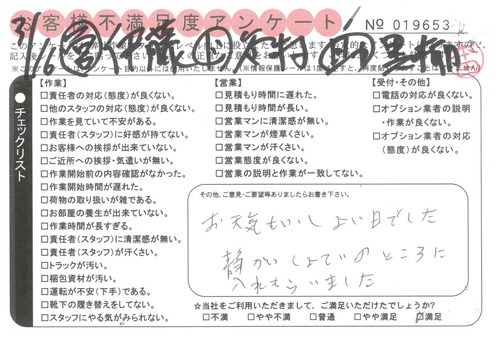 お客様不満足度アンケート
No 019653
チェックリスト
【作業】
□責任者(態度)が良くない。
□他のスタッフの対応(態度)が良くない。
□作業を見ていて不安がある。
□責任者(スタッフ)に好感が持てない。
□お客様への挨拶が出来ていない。
□ご近所への挨拶・気遣いが無い。
□作業開始前の内容確認がなかった。
□作業開始時間が遅れた。
□荷物の取り扱いが雑である。
□お部屋の養生が出来ていない。
□作業時間が長すぎる。
□責任者(スタッフ)に清潔感が無い。
□責任者(スタッフ)が汗くさい。
□トラックが汚い。
□梱包資材が汚い。
□運転が不安(下手)である。
□靴下の履き替えをしてない。
□スタッフにやる気がみられない。
【営業】
□見積もり時間に遅れた。
□見積もり時間が長い。
□営業マンに清潔感が無い。
□営業マンが煙草くさい。
□営業マンが汗くさい。
□営業態度が良くない。
□営業の説明と作業が一致してない。
【受付・その他】
□電話の対応が良くない。
□オプション業者の説明
・作業が良くない。
□オプション業者の対応
(態度)が良くない。
その他、ご意見・ご要望等ありましたらお書き下さい。
お天気もいいし よい日でした
静かい しょていのところに
入れもらいました
☆当社をご利用いただきまして、ご満足いただけたでしょうか?
□不満 □やや不満 □普通 □やや満足 ☑満足